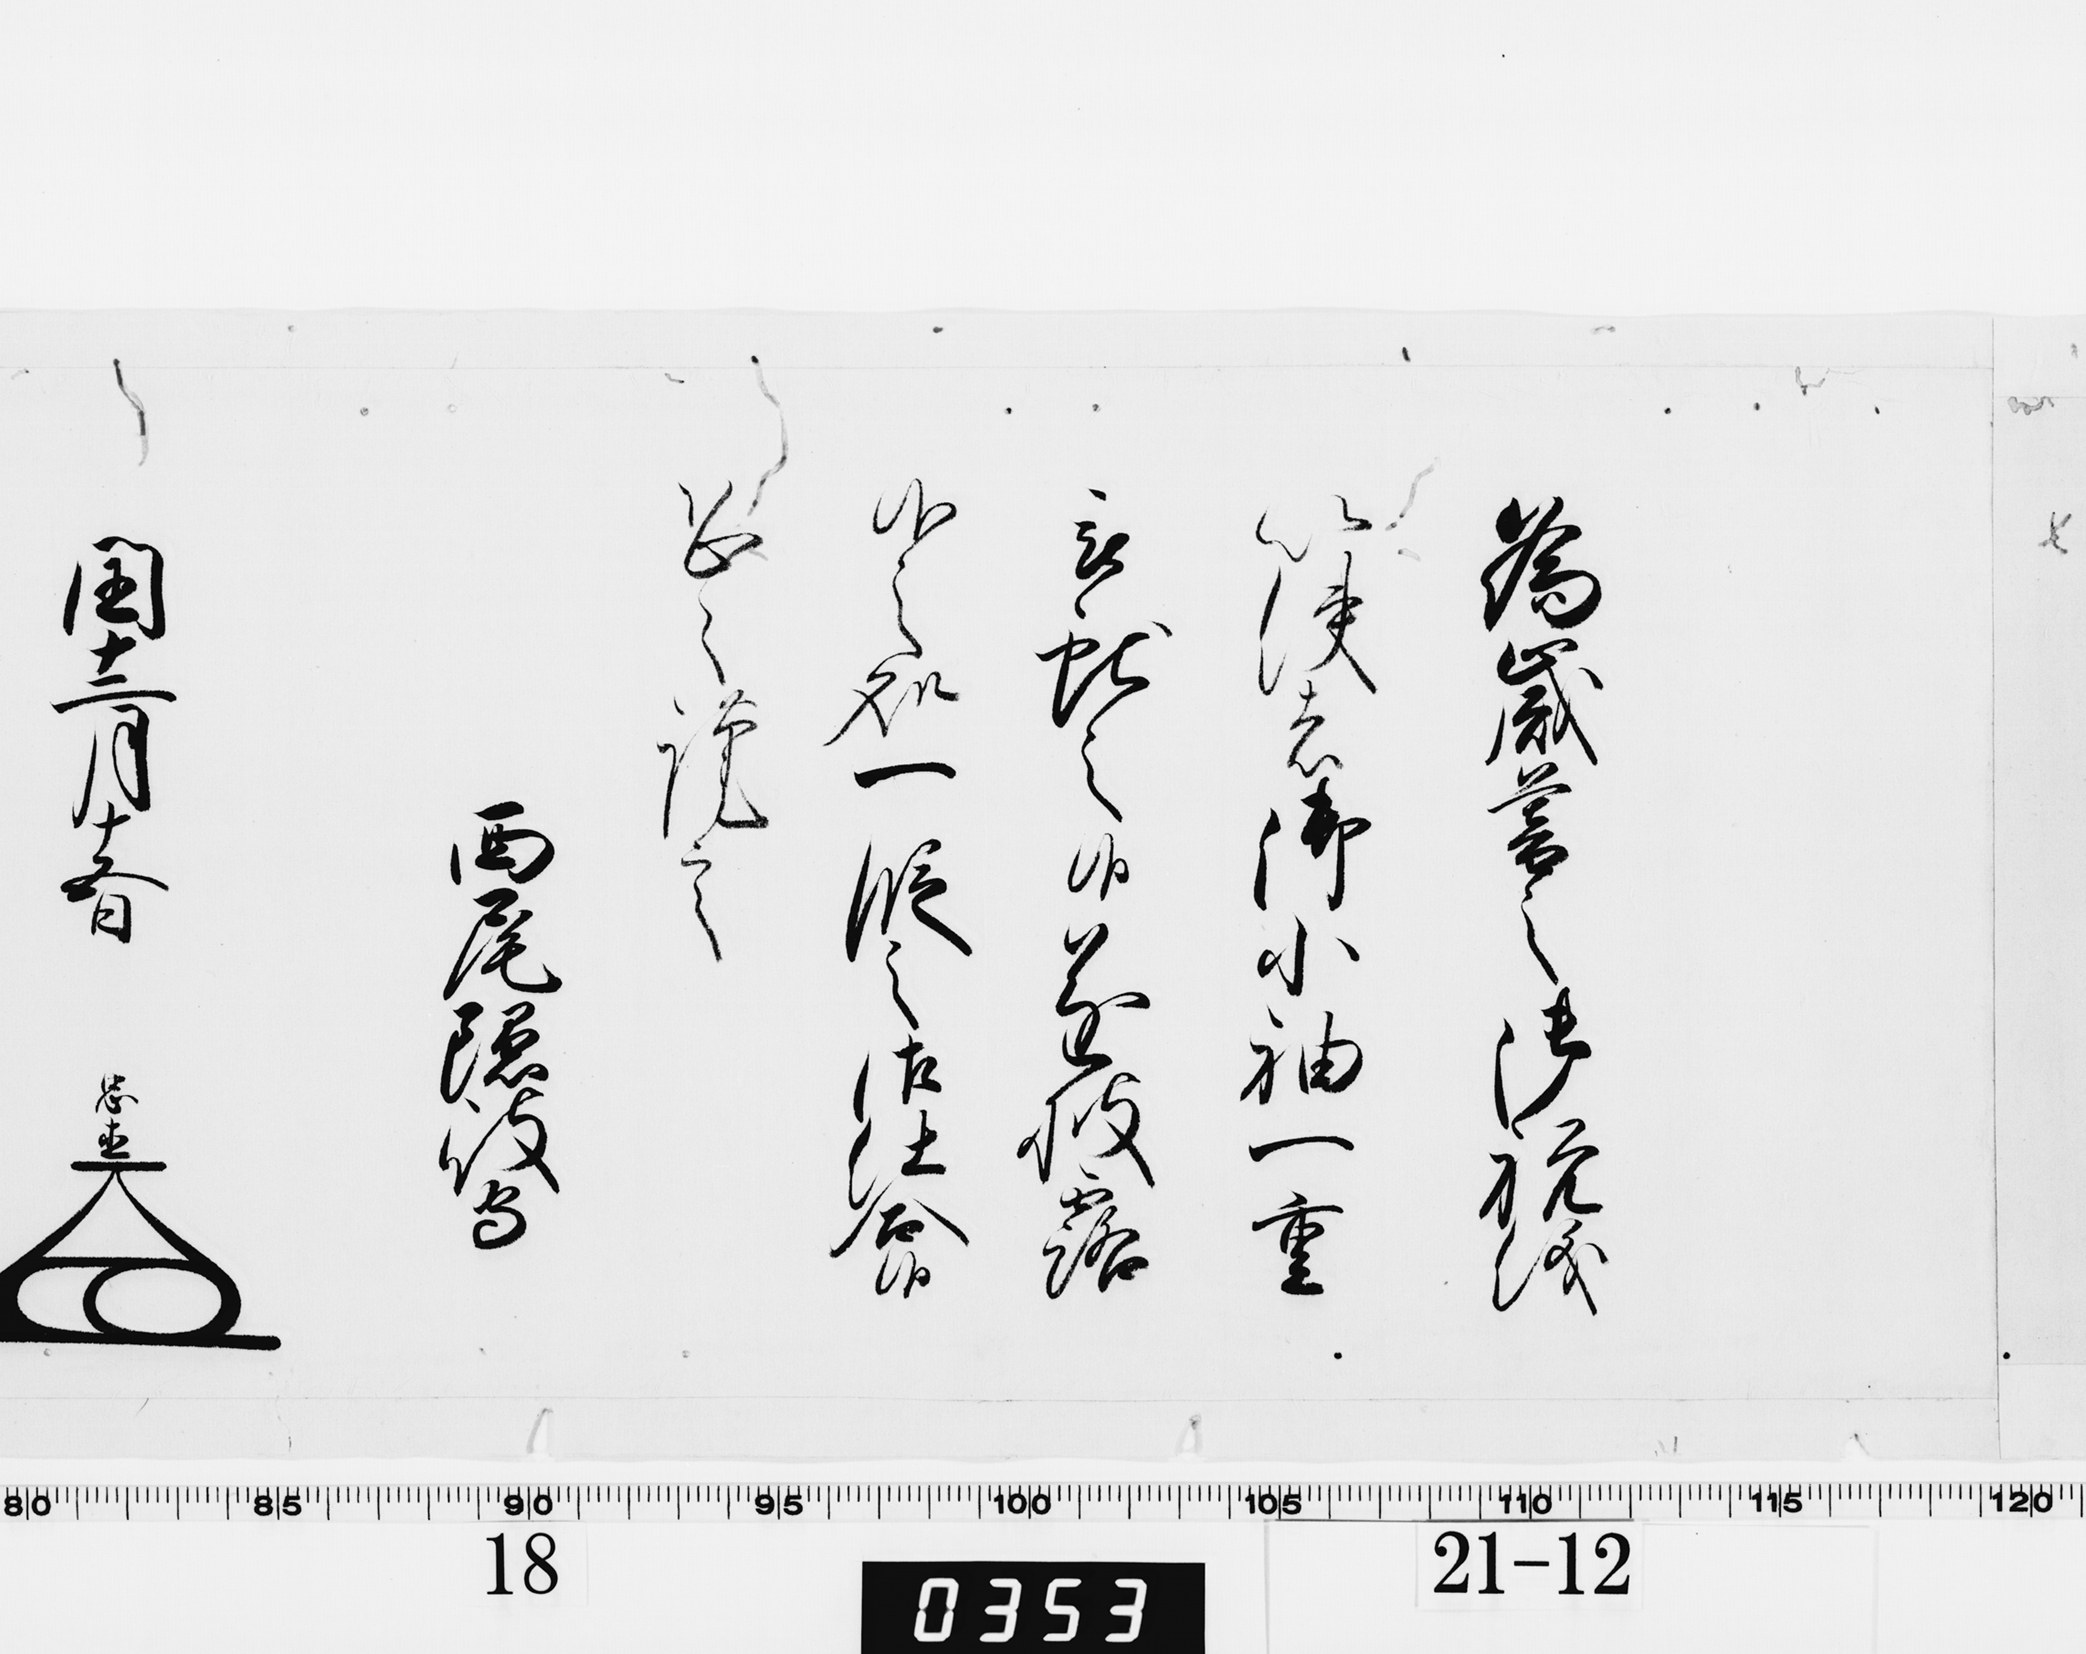 為歳暮之御祝儀
以使者御小袖一重
被献之候遂披露
候之処一段之御仕合候
恐々謹言
西尾隠岐守
閏十二月十五日 忠尚
80 85 90 95 100 105 110 115 120
18 0353 21-12